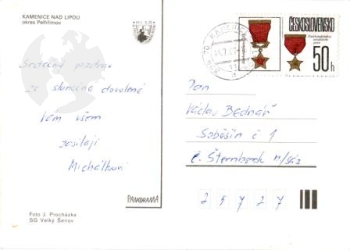 KAMENICE NAD LIPOU
okres Pelhřimov
Srdečný pozdrav
ze sluneční dovolené
Vám všem
zasílají
PANORAMA
Foto J. Procházka
SG Velký Šenov
ČESKOSLOVENSKO
50 h
Pan
Václav Bednář
Soběšín č 1
Č. Šternberk n/Sáz
2 5 7 2 7